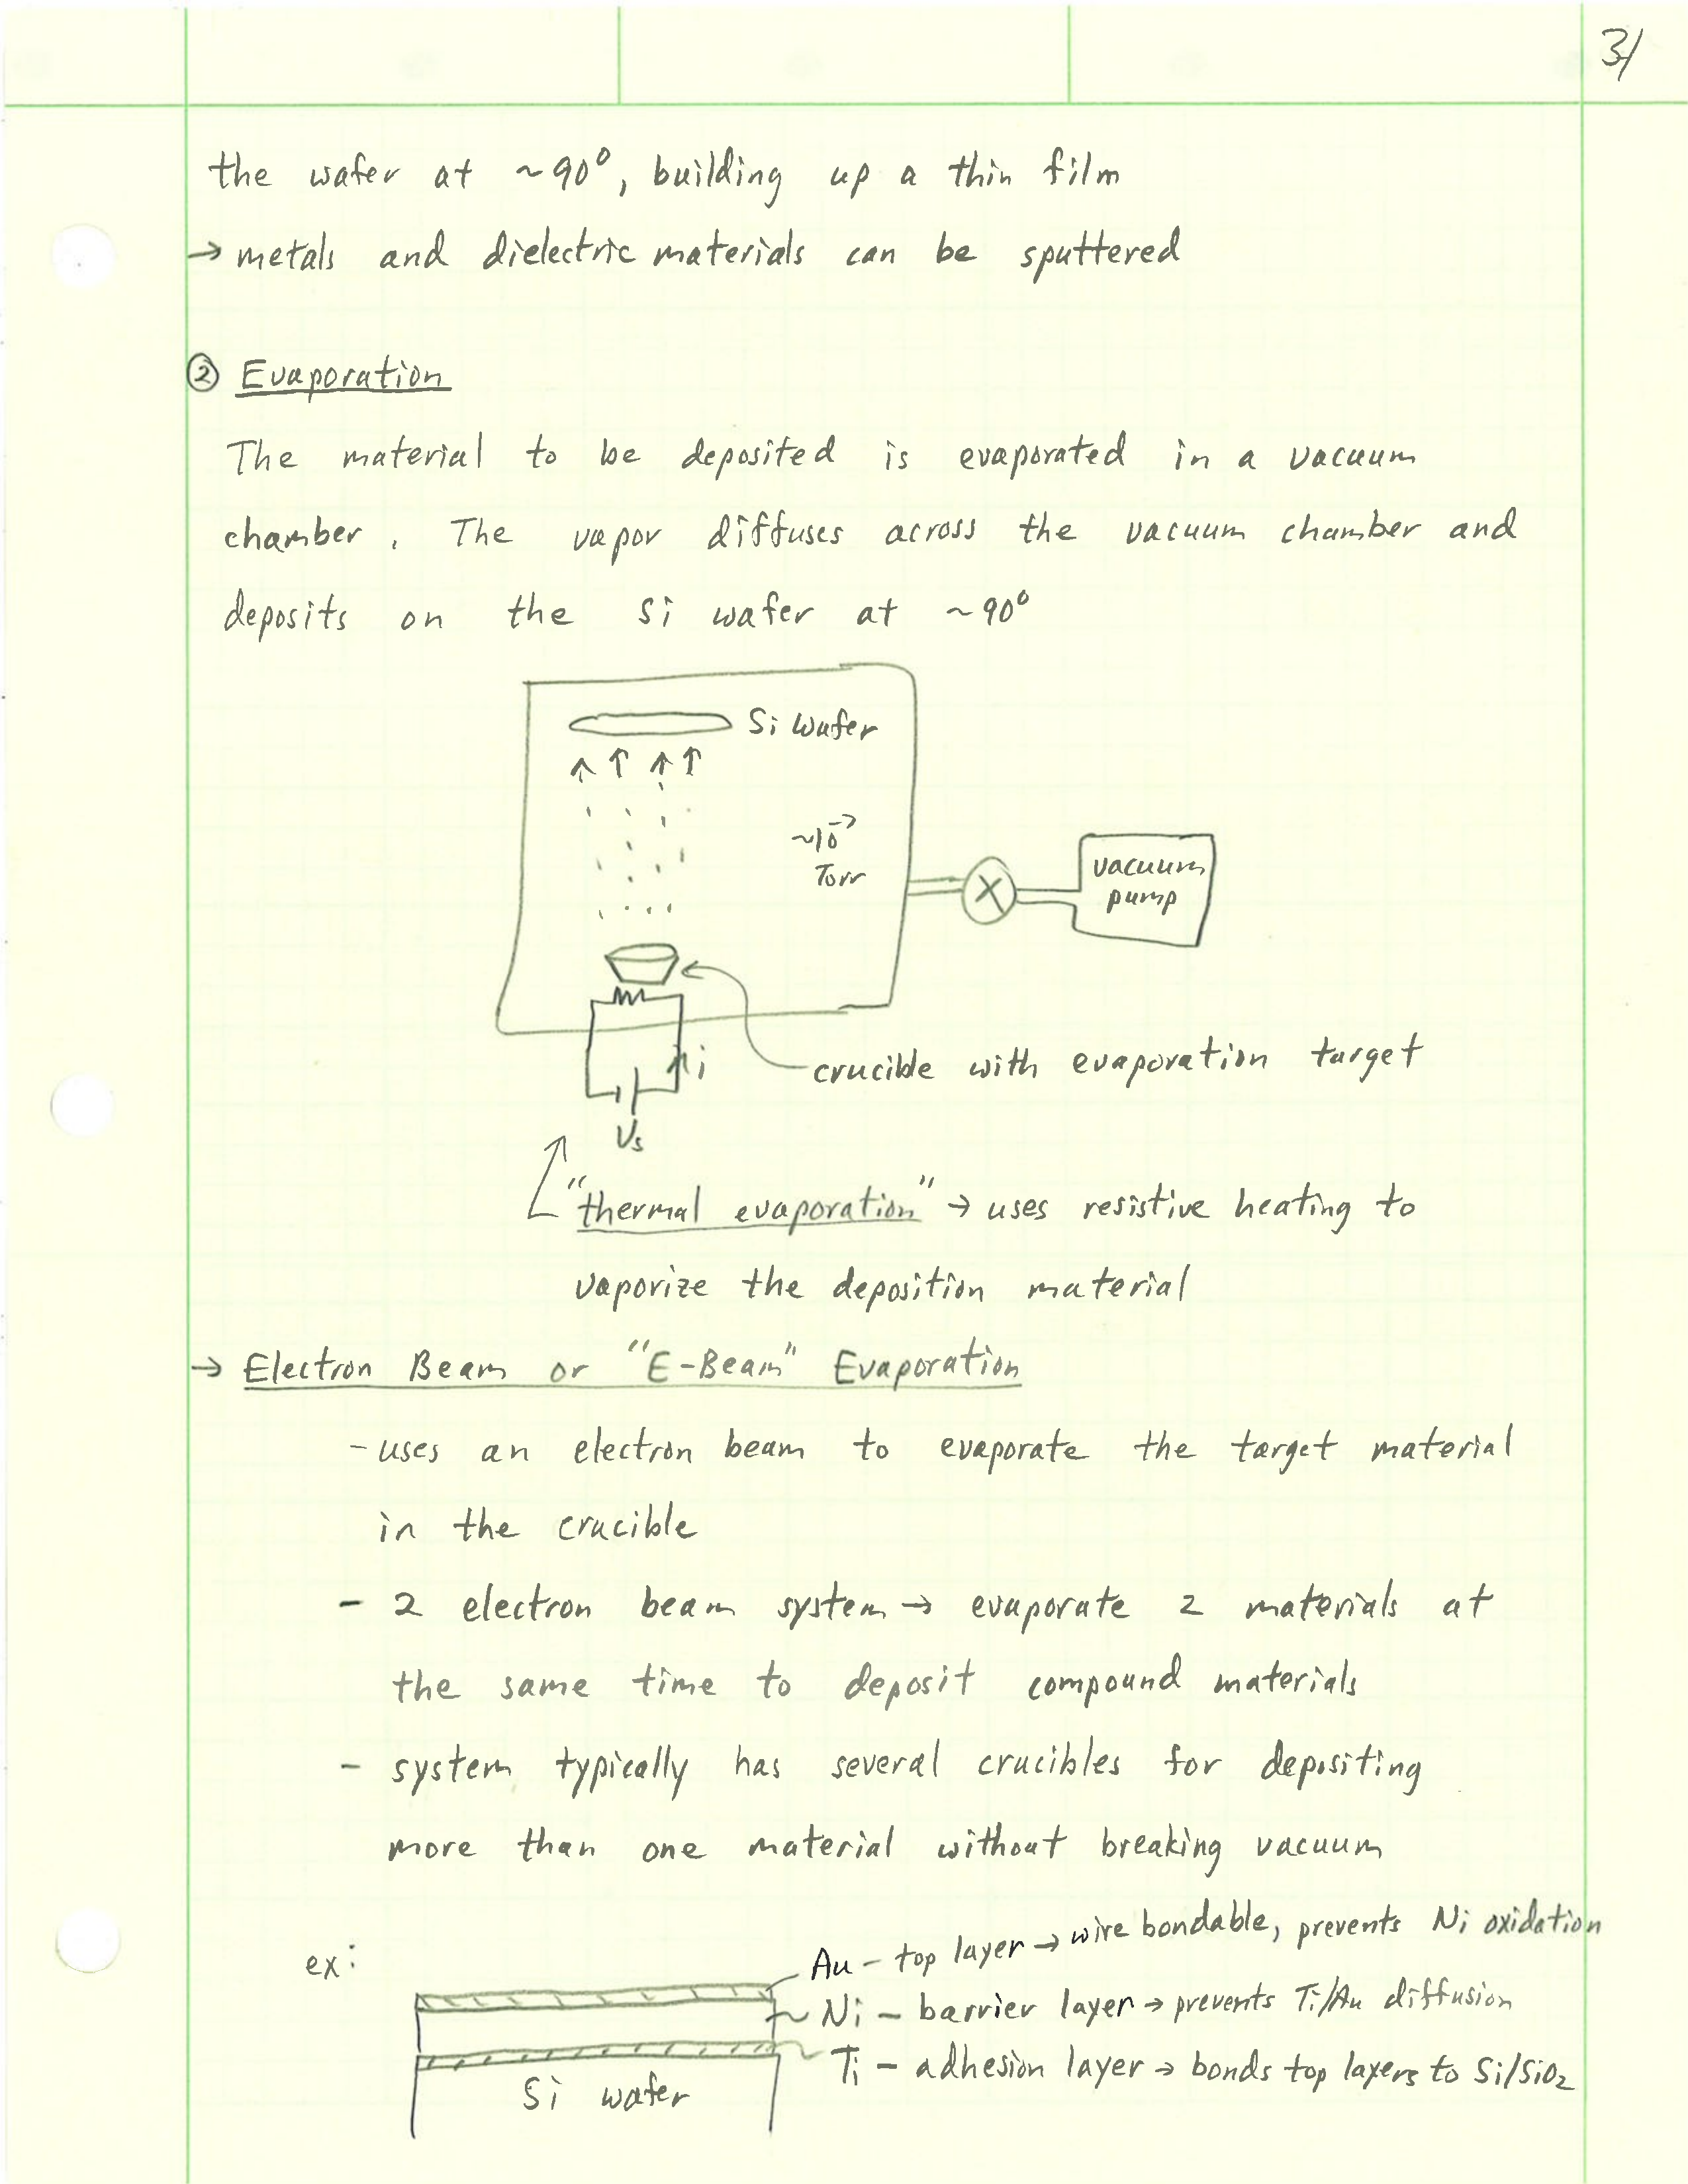 31
the wafer at ~90°, building up a thin film
→ metals and dielectric materials can be sputtered
② Evaporation
The material to be deposited is evaporated in a vacuum
chamber. The vapor diffuses across the vacuum chamber and
deposits on the Si wafer at ~90°
Si wafer
~10⁻⁷
Torr
vacuum
pump
i
crucible with evaporation target
Vs
"thermal evaporation" → uses resistive heating to
vaporize the deposition material
→ Electron Beam or "E-Beam" Evaporation
- uses an electron beam to evaporate the target material
in the crucible
- 2 electron beam system → evaporate 2 materials at
the same time to deposit compound materials
- system typically has several crucibles for depositing
more than one material without breaking vacuum
ex:
Au - top layer → wire bondable, prevents Ni oxidation
Ni - barrier layer → prevents Ti/Au diffusion
Ti - adhesion layer → bonds top layers to Si/SiO₂
Si wafer